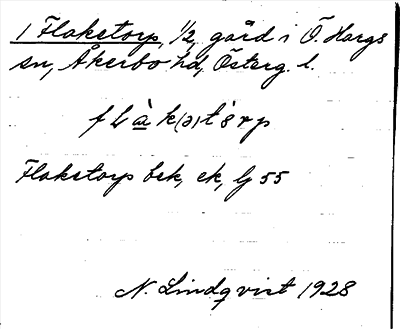 1 Flaketorp, 1/2, gård i Ö. Hargs
sn, Åkerbo hd, Österg. l.
f l à k(ə)t ò r p
Flaketorp bek, ek, lj 55
N. Lindqvist 1928